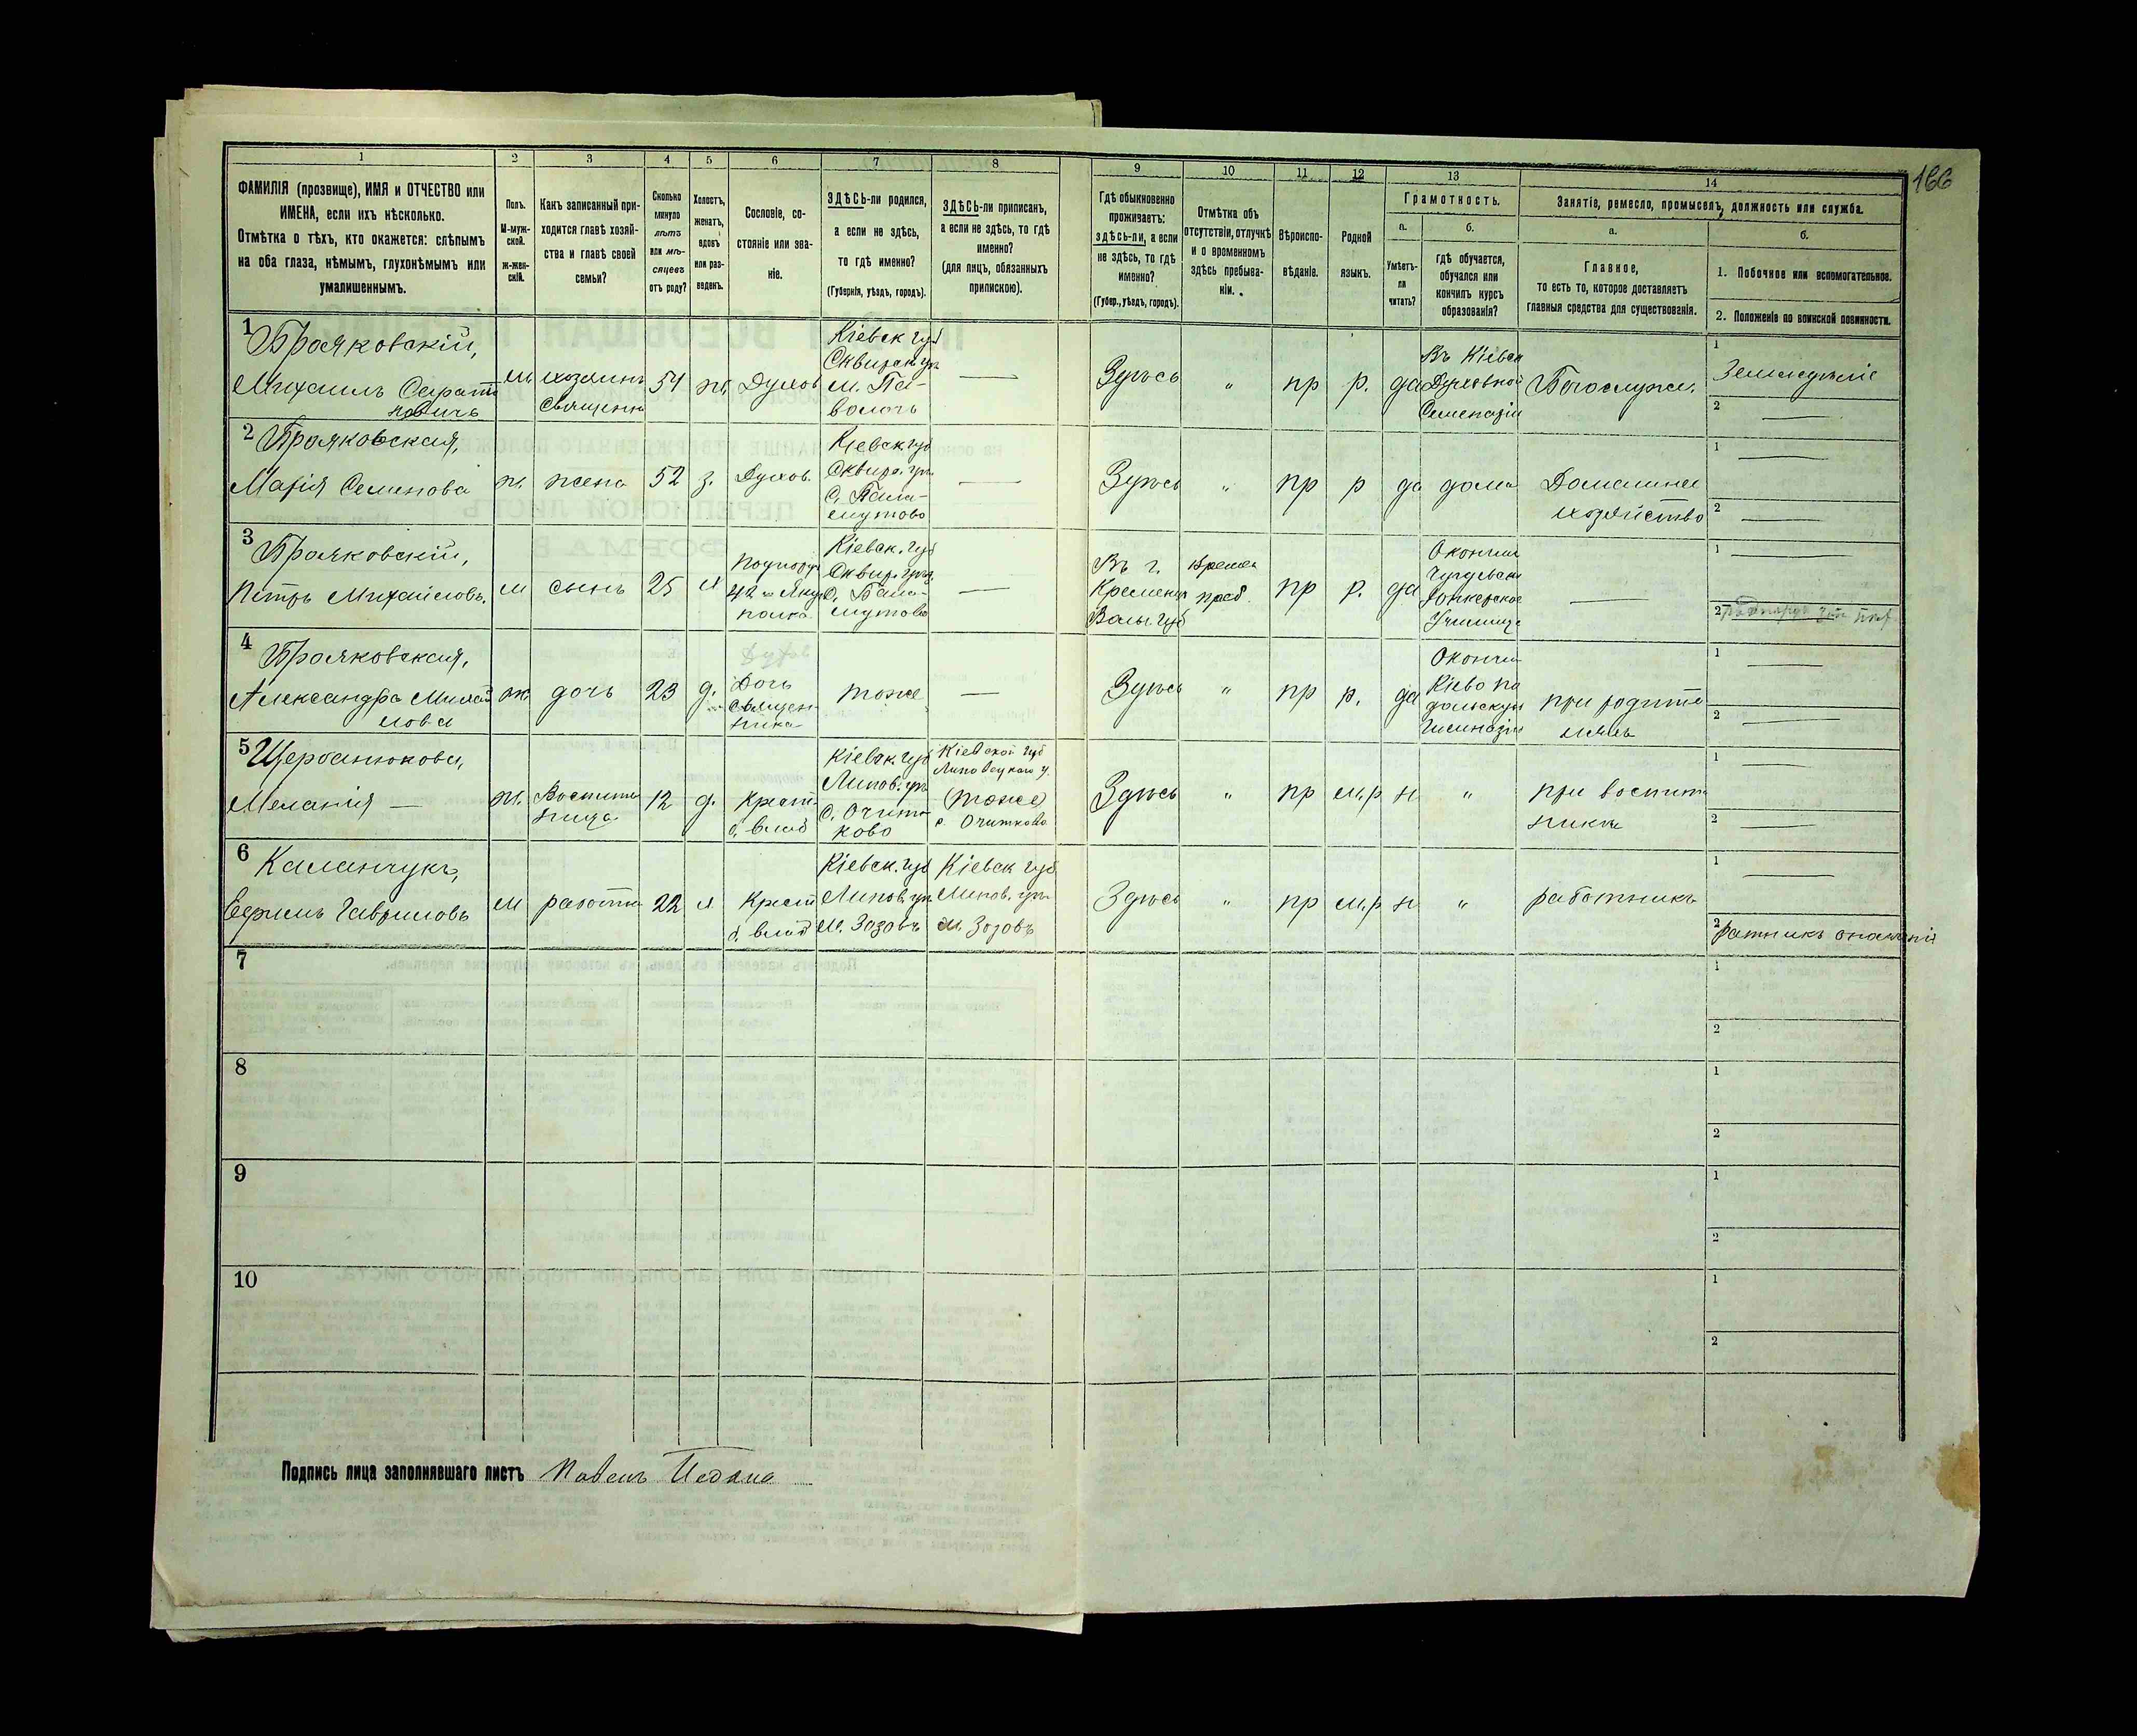 166
1 2 3 4 5 6 7 8 9 10 11 12 13 14
ФАМИЛІЯ (прозвище), ИМЯ и ОТЧЕСТВО или
ИМЕНА, если ихъ нѣсколько.
Отмѣтка о тѣхъ, кто окажется: слѣпымъ
на оба глаза, нѣмымъ, глухонѣмымъ или
умалишеннымъ.
Полъ.
М-муж-
ской.
ж-жен-
скій.
Какъ записанный при-
ходится главѣ хозяй-
ства и главѣ своей
семьи?
Сколько
минуло
лѣтъ
или мѣ-
сяцевъ
отъ роду?
Холостъ,
женатъ,
вдовъ
или раз-
веденъ.
Сословіе, со-
стояніе или зва-
ніе.
ЗДѢСЬ-ли родился,
а если не здѣсь,
то гдѣ именно?
(Губернія, уѣздъ, городъ).
ЗДѢСЬ-ли приписанъ,
а если не здѣсь, то гдѣ
именно?
(для лицъ, обязанныхъ
припискою).
Гдѣ обыкновенно
проживаетъ:
здѣсь-ли, а если
не здѣсь, то гдѣ
именно?
(Губер., уѣздъ, городъ).
Отмѣтка объ
отсутствіи, отлучкѣ
и о временномъ
здѣсь пребыва-
ніи.
Вѣроиспо-
вѣданіе.
Родной
языкъ.
Грамотность.
а.
Умѣетъ-
ли
читать?
б.
гдѣ обучается,
обучался или
кончилъ курсъ
образованія?
Занятіе, ремесло, промыселъ, должность или служба.
а.
Главное,
то есть то, которое доставляетъ
главныя средства для существованія.
б.
1. Побочное или вспомогательное.
2. Положеніе по воинской повинности.
1
Михаилъ
м
хозяинъ
54
Духов
Кіевск губ
м. Па-
волочь
—
Здѣсь
„
пр
р.
да
Въ Кіевск
Духовной
Богослуже.
1
Земледѣліе
2 —
2
Марія Семенова
ж.
жена
52
з.
Духов.
Кіевск. губ
Сквир. уѣ.
—
Здѣсь
„
пр
р
да
дома
хозяйство
1 —
2 —
3
Петръ Михайловъ.
м
сынъ
25
полка
Кіевск. губ
—
Въ г.
Кременец
Волын. губ
времен
преб.
пр
р.
да
Юнкерское
Училище
—
1 —
2
4
Александра Михай
лова
ж
дочь
23
д.
Дочь
священ-
ника
тоже
—
Здѣсь
„
пр
р.
да
Кіево По
дольскую
при родите
ляхъ
1 —
2 —
5
Меланія —
ж.
Воспита
ница
12
д.
Крест.
б. влад
Кіевск. губ
Липов. уѣ.
с. Очит-
ково
Кіевской губ
Липовецкого у.
(тоже)
с. Очитково
Здѣсь
„
пр
м.р
н
„
при воспита
1 —
2 —
6
Каланчукъ,
Гавриловъ
м
22
Крест
б. влад
Кіевск. губ
Липов. уѣ.
м. Зозовъ
Кіевск губ
Липов. уѣ.
м. Зозовъ
Здѣсь
„
пр
м.р
н
„
работникъ
1 —
2 ратникъ ополченія
7
1
2
8
1
2
9
1
2
10
1
2
Подпись лица заполнявшаго листъ Павелъ